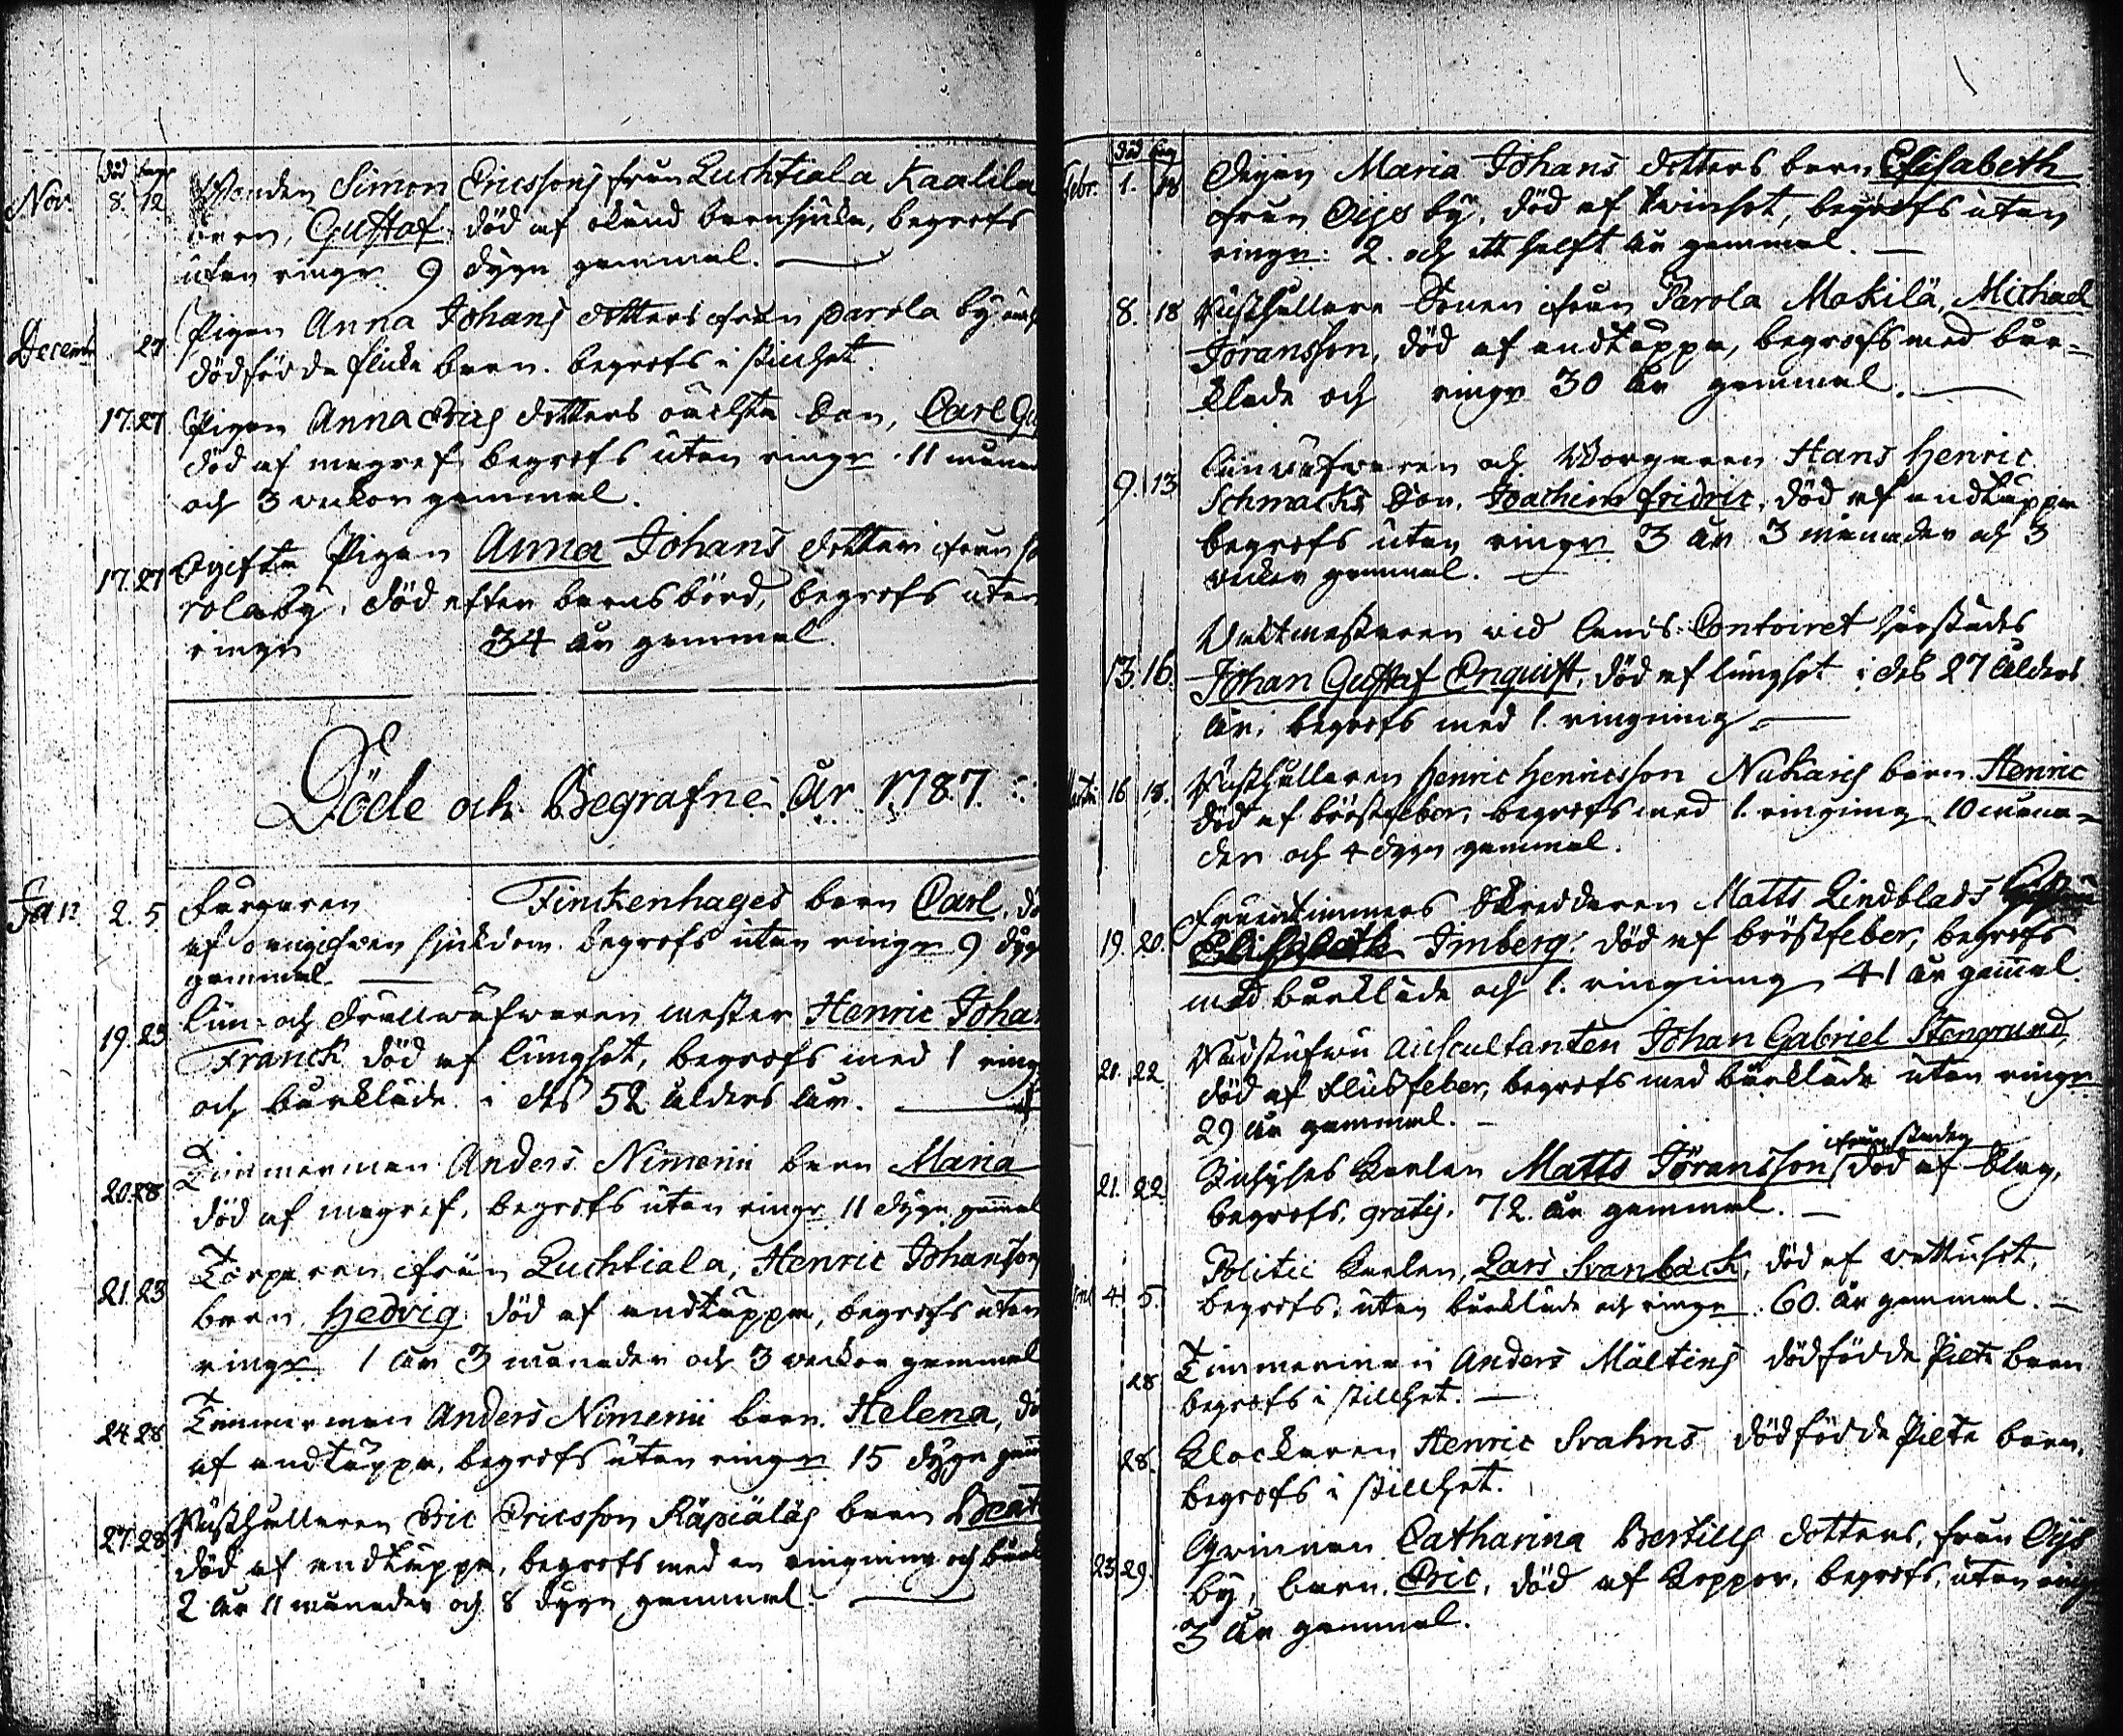 död begr
Nov. 8. 12 Bonden Simon Ericssons från Luchtiala Kaalila
barn, Gustaf, död af okänd barnsjuka, begrofs
utan ringn. 9 dygn gammal.
Decemb 27 Pigan Anna Johans dotters ifrån Parola by
dödfödde flicke barn. begrofs i stillhet.
17. 27 Pigan Anna Erics dotters oäckta Son, Carl
död af magref, begrofs utan ringn. 11 månad
och 3 veckor gammal.
17. 27 Ogifta Pigan Anna Johans dotter ifrån Pa
rola by, död efter barnsbörd, begrofs utan
ringn 34 år gammal.
Döde och Begrafne År 1787.
Jan 2. 5. Färgaren Finckenhages barn Carl, dö
af ångifwen sjukdom. begrofs utan ringn 9 dyg
gammal.
19. 25 Lin- och Drällwäfwaren mäster Henric Johan
Franck död af lungsot, begrofs med 1 ring
och bårkläde i des 52 ålders år.
20. 28 Timmerman Anders Nimenii barn Maria
död af magref, begrofs utan ringn 11 dygn gamal
21. 23 Torparen ifrån Luchtiala, Henric Johansson
barn, Hedvig död af andtäppa, begrofs utan
ringn 1 år 3 månader och 3 veckor gammal
24 28 Timmerman Anders Nimenii barn Helena, dö
af andtäppa, begrofs utan ringn 15 dygn gam
27. 28 Rusthållaren Eric Ericsson Räpiäläs barn Beat
död af andtäppa, begrofs med en ringning och bårkl
2 år 11 månader och 8 dygn gammal.
död beg
Febr. 1. 18 Pigan Maria Johans dotters barn Elisabeth
ifrån Öijs by, död af twinsot, begrofs utan
ringn: 2. och ett halft år gammal.
8. 18 Rusthållare Sonen ifrån Parola Mokilä, Michael
Jöransson, död af andtäppa, begrofs med bår-
kläde och ringn 30 år gammal.
9. 13 Linwäfwaren och Borgaren Hans Henric
Schmacks Son, Joachim Fridric, död af andtäppa
begrofs utan ringn 3 år 3 månader och 3
veckor gammal.
13. 16. Vaktmästaren vid Lands Contoiret härstädes
Johan Gustaf Enquist, död af lungsot i des 27 ålders
år, begrofs med 1. ringning
16 18. Rusthållaren Henric Henricsson Nukaris barn Henric
död af bröstfeber, begrofs med 1. ringning 10 måna-
der och 4 dygn gammal.
19. 20. Fruentimmers Skreddaren Matts Lindblads
Elisabeth Imberg. död af bröstfeber, begrofs
med bårkläde och 1. ringning 41 år gamal.
21. 22 Rådstufwu Auscultanten Johan Gabriel Stengrund,
död af flussfeber, begrofs med bårkläde utan ringn
29 år gammal.
21. 22 Karlen Matts Jöransson ifrån staden död af slag,
begrofs, gratis. 72. år gammal.
4. 5. Politie Karlen, Lars Svanbäck, död af vattusot,
begrofs, utan bårkläde och ringn 60. år gammal.
28 Timmerman Anders Mältins dödfödde Pilte barn
begrofs i stillhet.
28. Klockaren Henric Svahns dödfödde Pilte barn,
begrofs i stillhet.
23 29. Qvinnan Catharina Bertills dotters, från Öijs
by, barn, Eric, död af koppor, begrofs, utan ringn
3 år gammal.